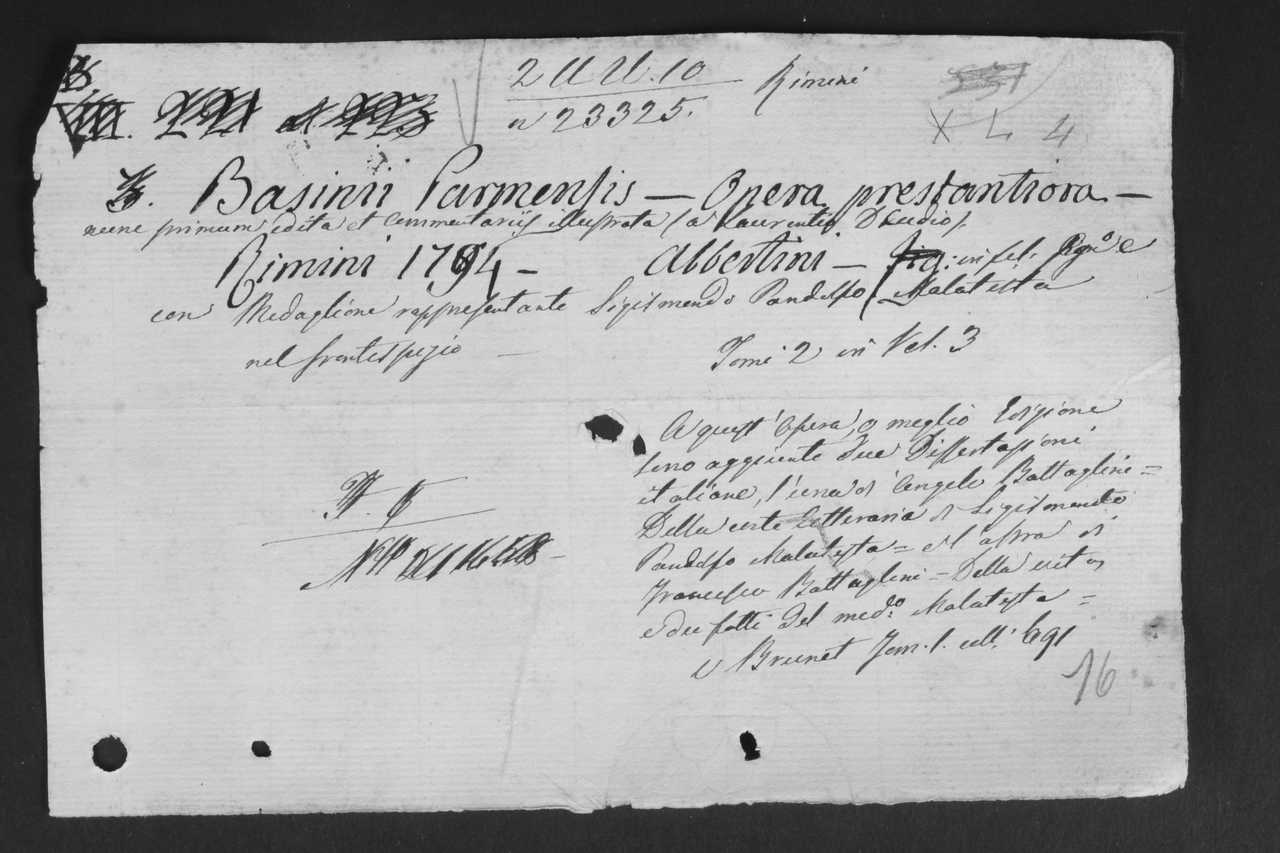 2 U U. 10 Rimini
n 23325.
X L 4
Basinii Parmensis — Opera prestantiora —
nunc primum edita et commentariis illustrata (a Laurentio Drudio)
Rimini 1794 — Albertini — in fol. e
con Medaglione rappresentante Sigismondo Pandolfo Malatesta
nel frontespizio — Tomi 2 in Vol. 3
A quest'opera, o meglio Edizione
sono aggiunte due Dissertazioni
italiane, l'una di Angelo Battaglini =
Della corte letteraria di Sigismondo
Pandolfo Malatesta = e l'altra di
Francesco Battaglini = Della vita
e de fatti del med.o Malatesta =
v Brunet Tom. 1. coll. 691
16